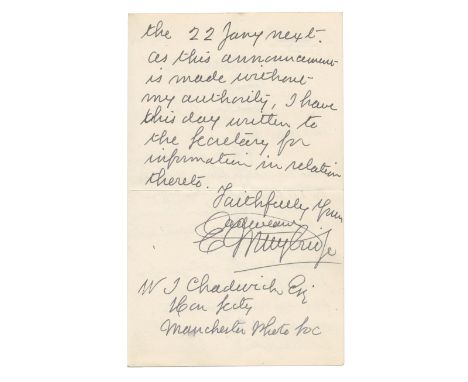 the 22 Jany next.
as this announcement
is made without
my authority, I have
this day written to
the Secretary for
information in relation
thereto.
Faithfully Yours
Eadweard
Muybridge
W I Chadwick Esq
Hon Secty
Manchester Photo Soc